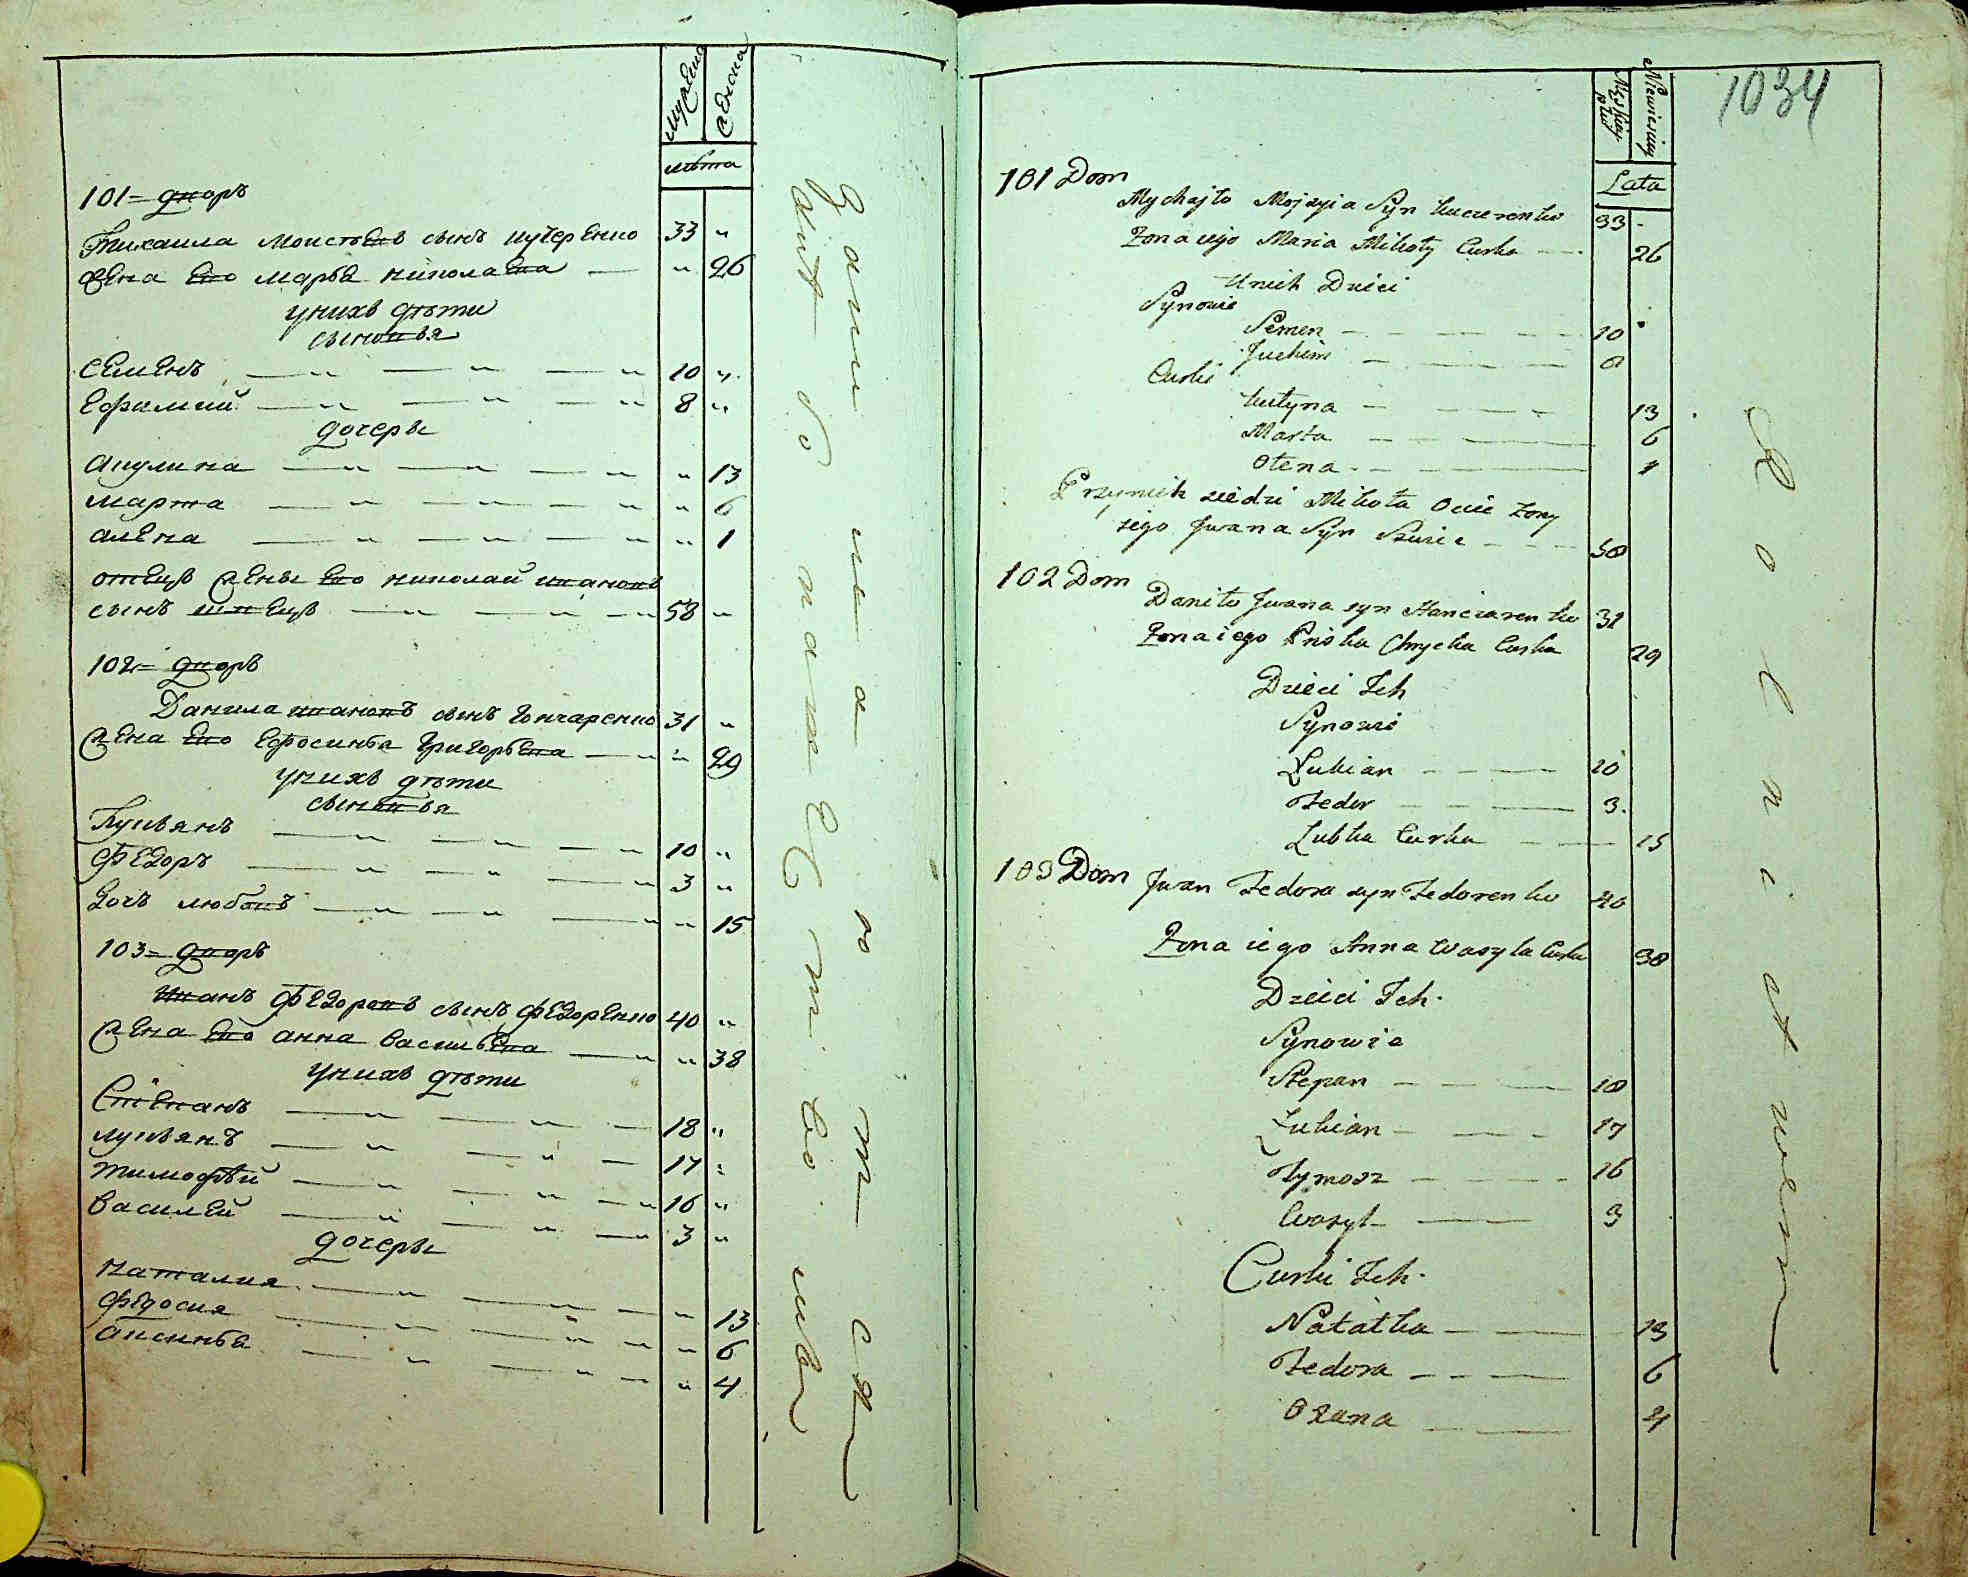 мужеска
женска
лѣта
101 = дворъ
Михаила Моисѣевъ сынъ Кучеренко 33 "
жена ево Марья Николаева — " 26
у нихъ дѣти
сыновья
Семенъ — " — " — " 10 "
Ефимий — " — " — " 8 "
дочеры
Акулина — " — " — " " 13
Марта — " — " — " " 6
Алена — " — " — " " 1
отецъ жены ево Николай Ивановъ
сынъ Швецъ — " — " — " 58 "
102 = дворъ
Данила Ивановъ сынъ Гончаренко 31 "
жена ево Ефросинья Григорьева — " " 29
у нихъ дѣти
сыновья
Лукьянъ — " — " — " 10 "
Федоръ — " — " — " 3 "
дочь Любовъ — " — " — " " 15
103 = дворъ
Иванъ Федоровъ сынъ Федоренко 40 "
жена ево Анна Васильева — " " 38
у нихъ дѣти
Степанъ — " — " — 18 "
Лукьянъ — " — " — 17 "
Тимофѣй — " — " — " 16 "
Василей — " — " — " 3 "
дочеры
Наталия — " — " — " 13
Федосия — " — " — " 6
Аксинья — " — " — " 4
1034
Męskiey płci
Niewiesciey
Lata
101 Dom
Mychajło Mojzyia Syn Kuczerenko 33 -
Zona iego Maria Mikoły Curka - - - 26
U nich Dzieci
Synowie
Semen - - - - - 10
Juchim - - - - - 8
Curki
Kulyna - - - - 13
Marta - - - - 6
Ołena - - - - 1
Przy nich siedzi Mikoła Ociec Zony
iego Jwana Syn Szwiec - - - 58
102 Dom
Daniło Jwana syn Hanczarenko 31
Zona iego Priska Chrycka Curka 29
Dzieci Ich
Synowie
Łukian - - - - 10
Fedor - - - - 3
Lubka Curka - - 15
103 Dom Jwan Fedora syn Fedorenko 40
Zona iego Anna Wasyla Curka 38
Dzieci Ich
Synowie
Stepan - - - - 18
Łukian - - - - 17
Tymosz - - - - 16
Wasyl - - - 3
Curki Ich
Natałka - - - 13
Fedora - - - - 6
Oxana - - - 4